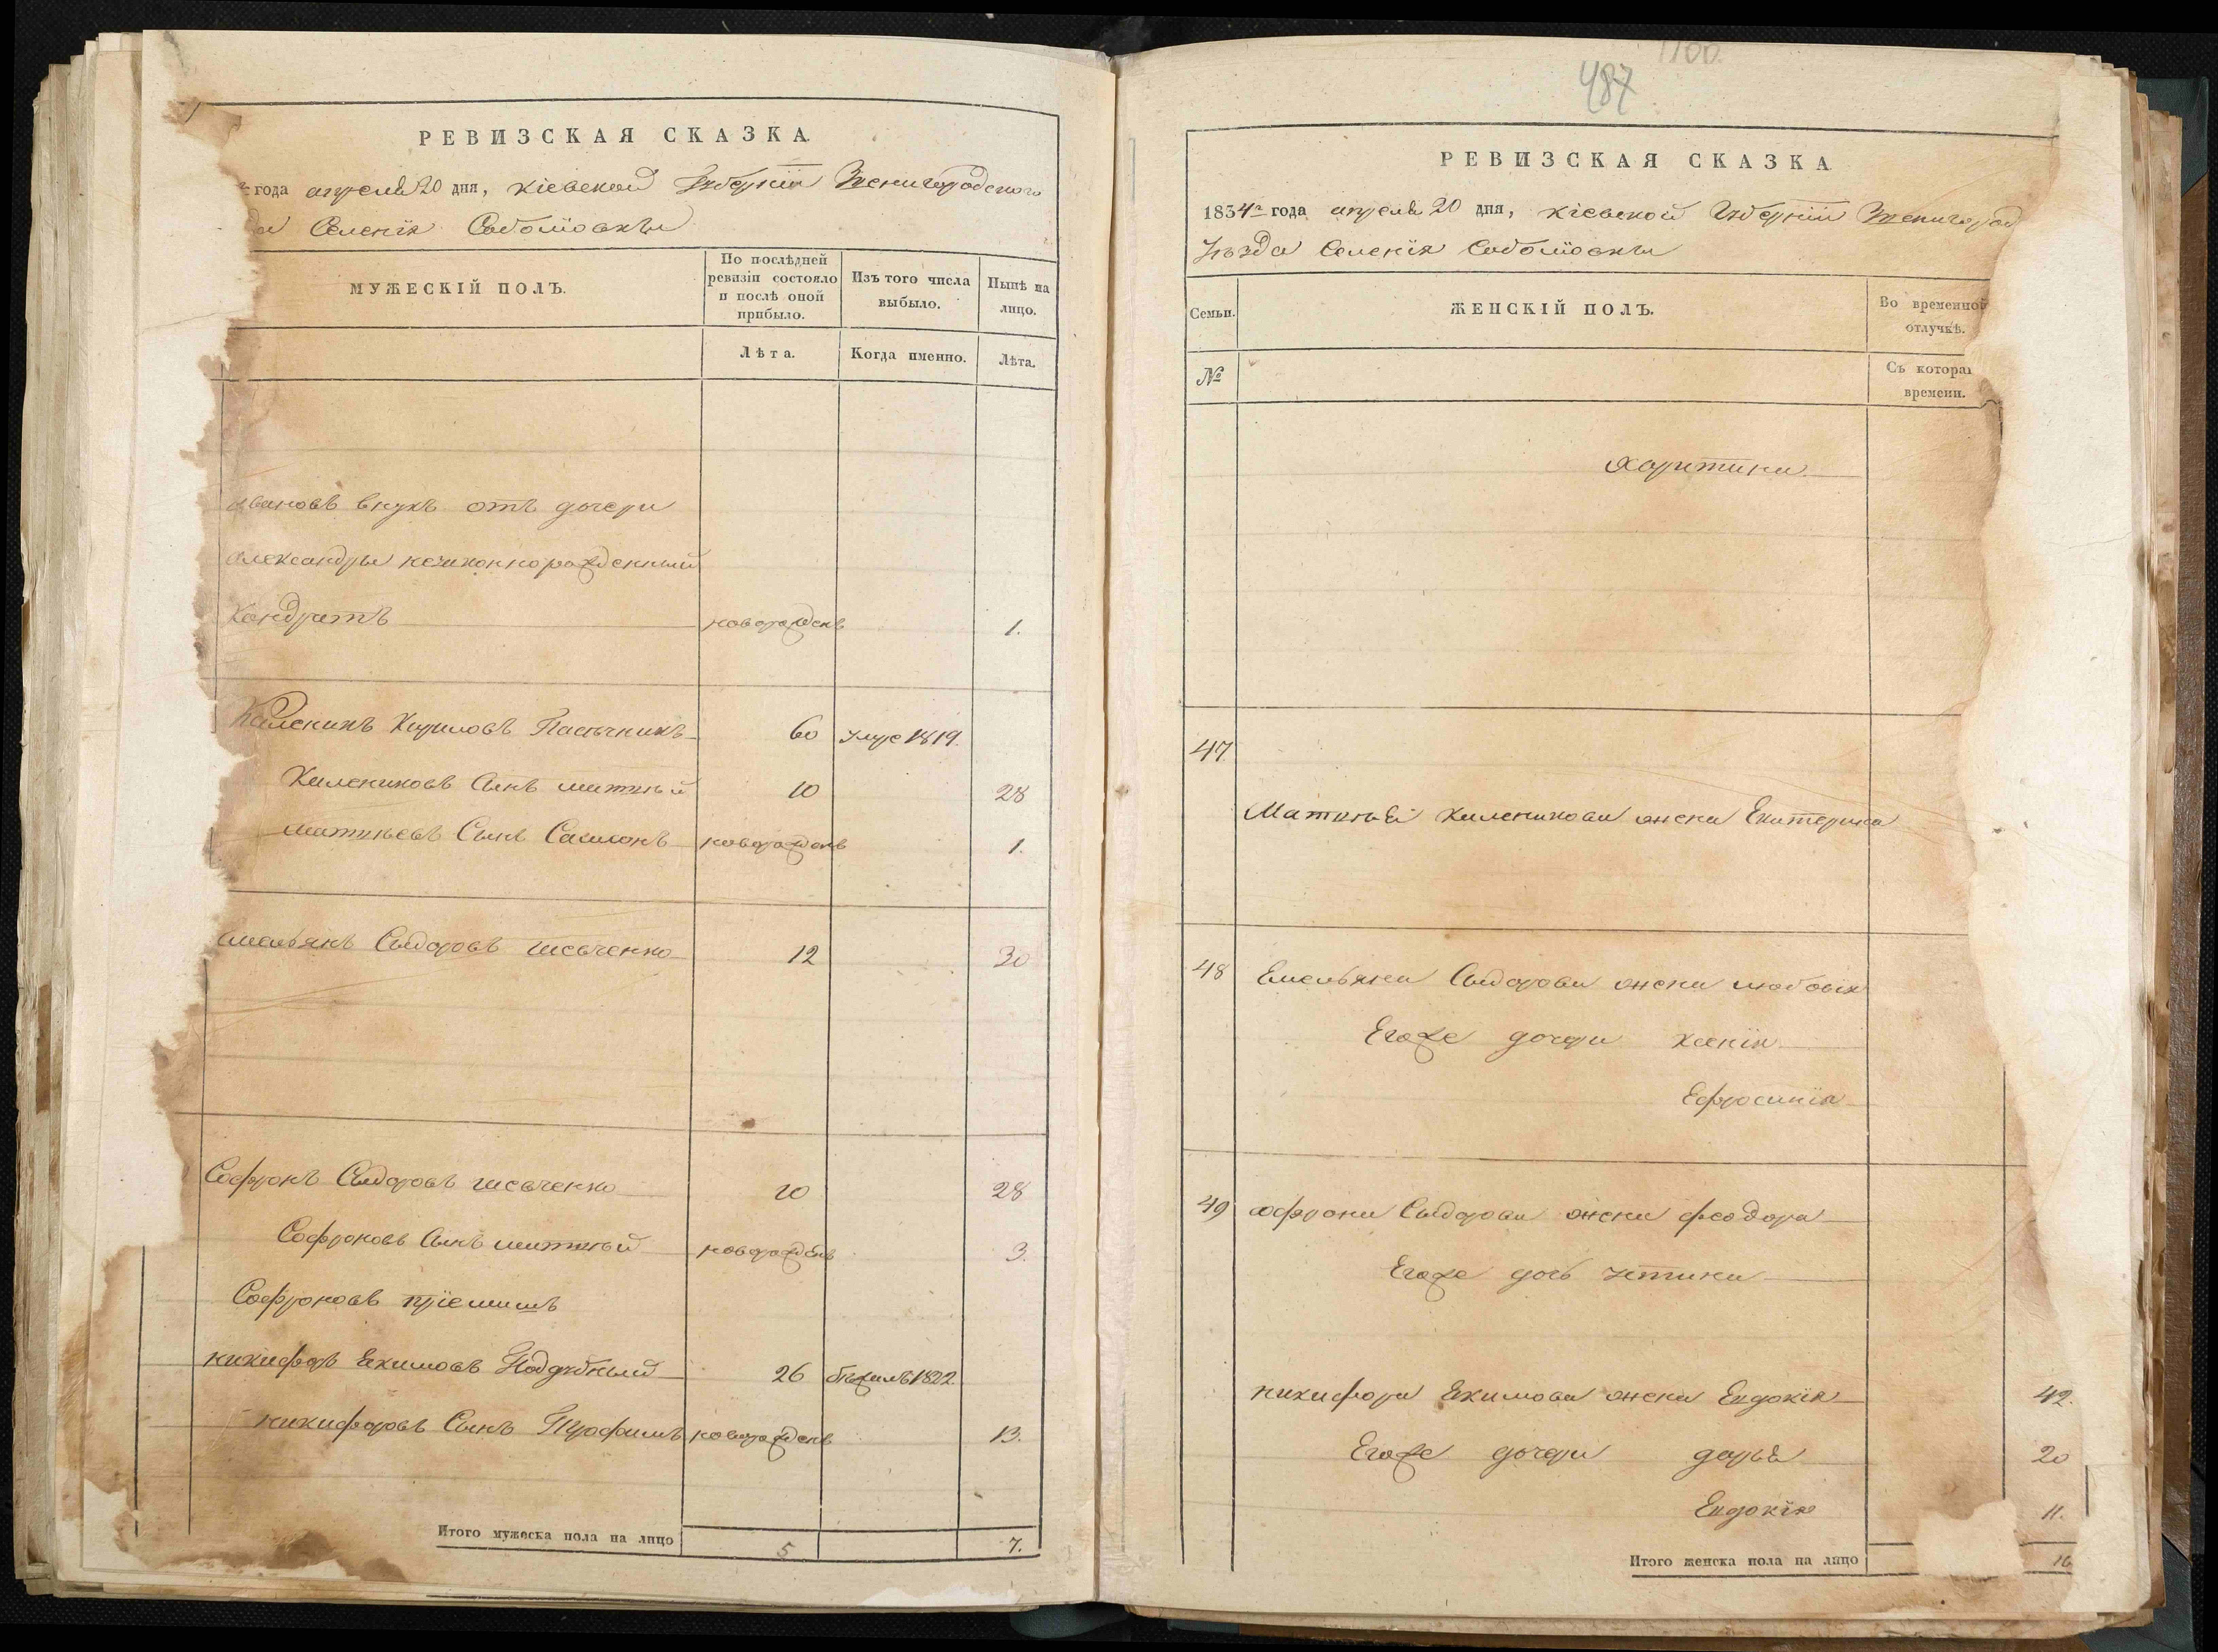 РЕВИЗСКАЯ СКАЗКА
года апреля 20 дня, Кіевской Губерніи Звенигородского
да Селенія Соболіовки
МУЖЕСКІЙ ПОЛЪ.
По послѣдней ревизіи состояло и послѣ оной прибыло.
Изъ того числа выбыло.
Нынѣ на лицо.
Лѣта.
Когда именно.
Лѣта.
Ивановъ внукъ отъ дочери
Александры незаконнорожденный
Кондратъ новорожденъ 1.
Каленикъ Кириловъ Пасѣчникъ 60 умре 1819.
Калениковъ Сынъ матвѣй 10 28
матвѣевъ Сынъ Самсонъ новорожденъ 1.
Емельянъ Сыдоровъ шевченко 12 30
Софронъ Сыдоровъ шевченко 10 28
Софроновъ Сынъ матвѣй новорожденъ 3.
Софроновъ пріемышъ
никифоръ Екимовъ Поддубный 26 бѣжалъ 1822.
никифоровъ Сынъ Трофимъ новорожденъ 13.
Итого мужеска пола на лицо 5 7.
1100.
487
РЕВИЗСКАЯ СКАЗКА
1834го года апреля 20 дня, Кіевской Губерніи Звенигород
уѣзда Селенія Соболіовки
Семьи.
ЖЕНСКІЙ ПОЛЪ.
Во временной отлучкѣ.
№
Съ котора
времени.
Харитина
47
Матвѣя Каленикова жена Екатерина
48 Емельяна Сыдорова жена любовія
Егоже дочери Ксенія
Ефросинія
49 Софрона Сыдорова жена феодора
Егоже дочь устина
никифора Екимова жена Евдокія 42.
Егоже дочери дарья 20
Евдокія 11.
Итого женска пола на лицо 16